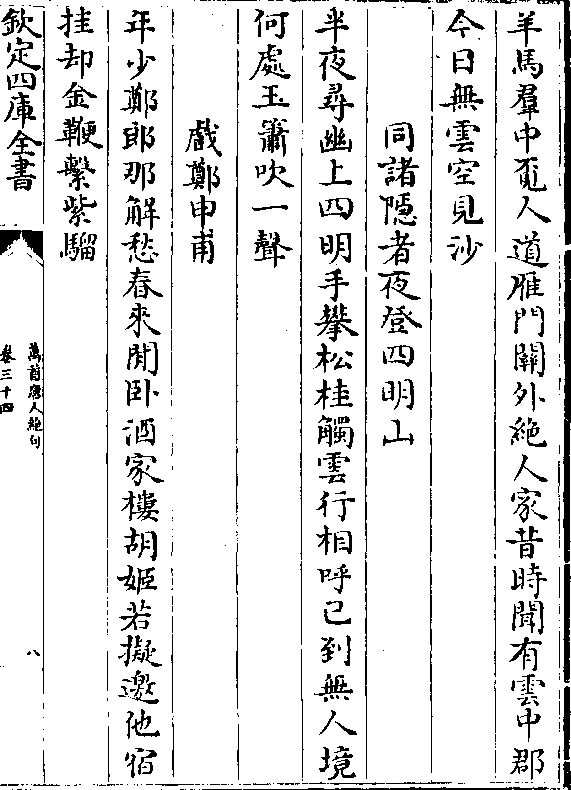 羊馬羣中覓人道雁門關外絶人家昔時聞有雲中郡
今日無雲空見沙
同諸隠者夜登四明山
半夜尋幽上四明手攀松桂觸雲行相呼已到無人境
何處玉簫吹一聲
戲鄭申甫
年少鄭郎那解愁春來閒卧酒家樓胡姬若擬邀他宿
挂却金鞭繫紫騮
欽定四庫全書
萬首唐人絶句
卷三十四
八